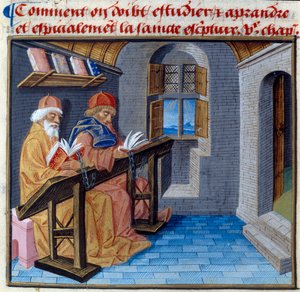 Comment on doibt estudier ⁊ aprandre
et espicialemẽt la saincte escpture. vᵉ. chap̃.